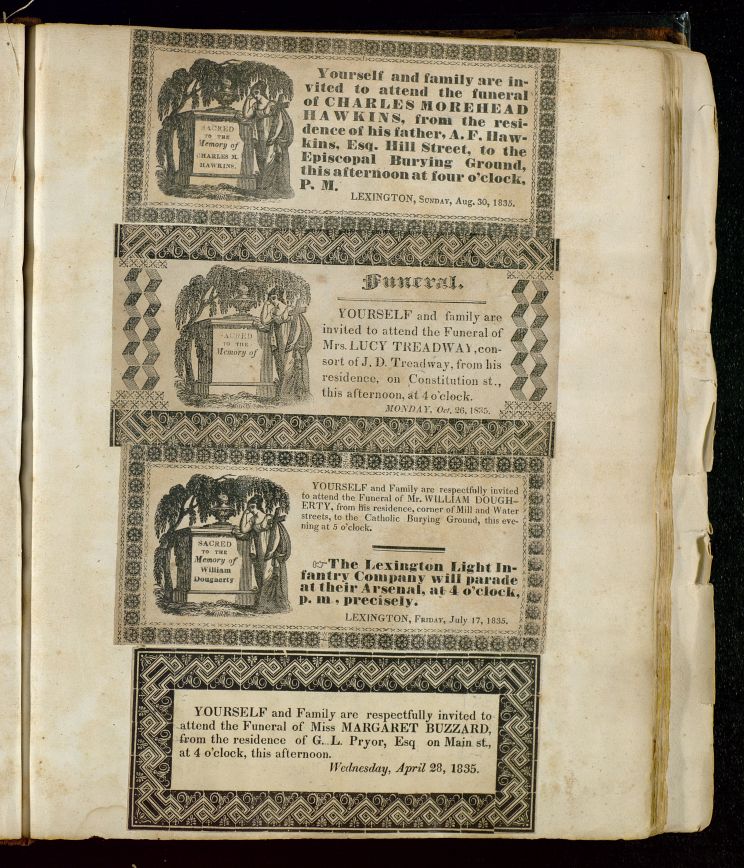 SACRED
TO THE
Memory of
CHARLES M.
HAWKINS.
Yourself and family are in-
vited to attend the funeral
of CHARLES MOREHEAD
HAWKINS, from the resi-
dence of his father, A. F. Haw-
kins, Esq. Hill Street, to the
Episcopal Burying Ground,
this afternoon at four o'clock,
P. M.
LEXINGTON, SUNDAY, Aug. 30, 1835.
SACRED
TO THE
Memory of
Funeral.
YOURSELF and family are
invited to attend the Funeral of
Mrs. LUCY TREADWAY, con-
sort of J. D. Treadway, from his
residence, on Constitution st.,
this afternoon, at 4 o'clock.
MONDAY, Oct. 26, 1835.
SACRED
TO THE
Memory of
William
Dougaerty
YOURSELF and Family are respectfully invited
to attend the Funeral of Mr. WILLIAM DOUGH-
ERTY, from his residence, corner of Mill and Water
streets, to the Catholic Burying Ground, this eve-
ning at 5 o'clock.
☞The Lexington Light In-
fantry Company will parade
at their Arsenal, at 4 o'clock,
p. m., precisely.
LEXINGTON, FRIDAY, July 17, 1835.
YOURSELF and Family are respectfully invited to
attend the Funeral of Miss MARGARET BUZZARD,
from the residence of G. L. Pryor, Esq on Main st.,
at 4 o'clock, this afternoon.
Wednesday, April 28, 1835.